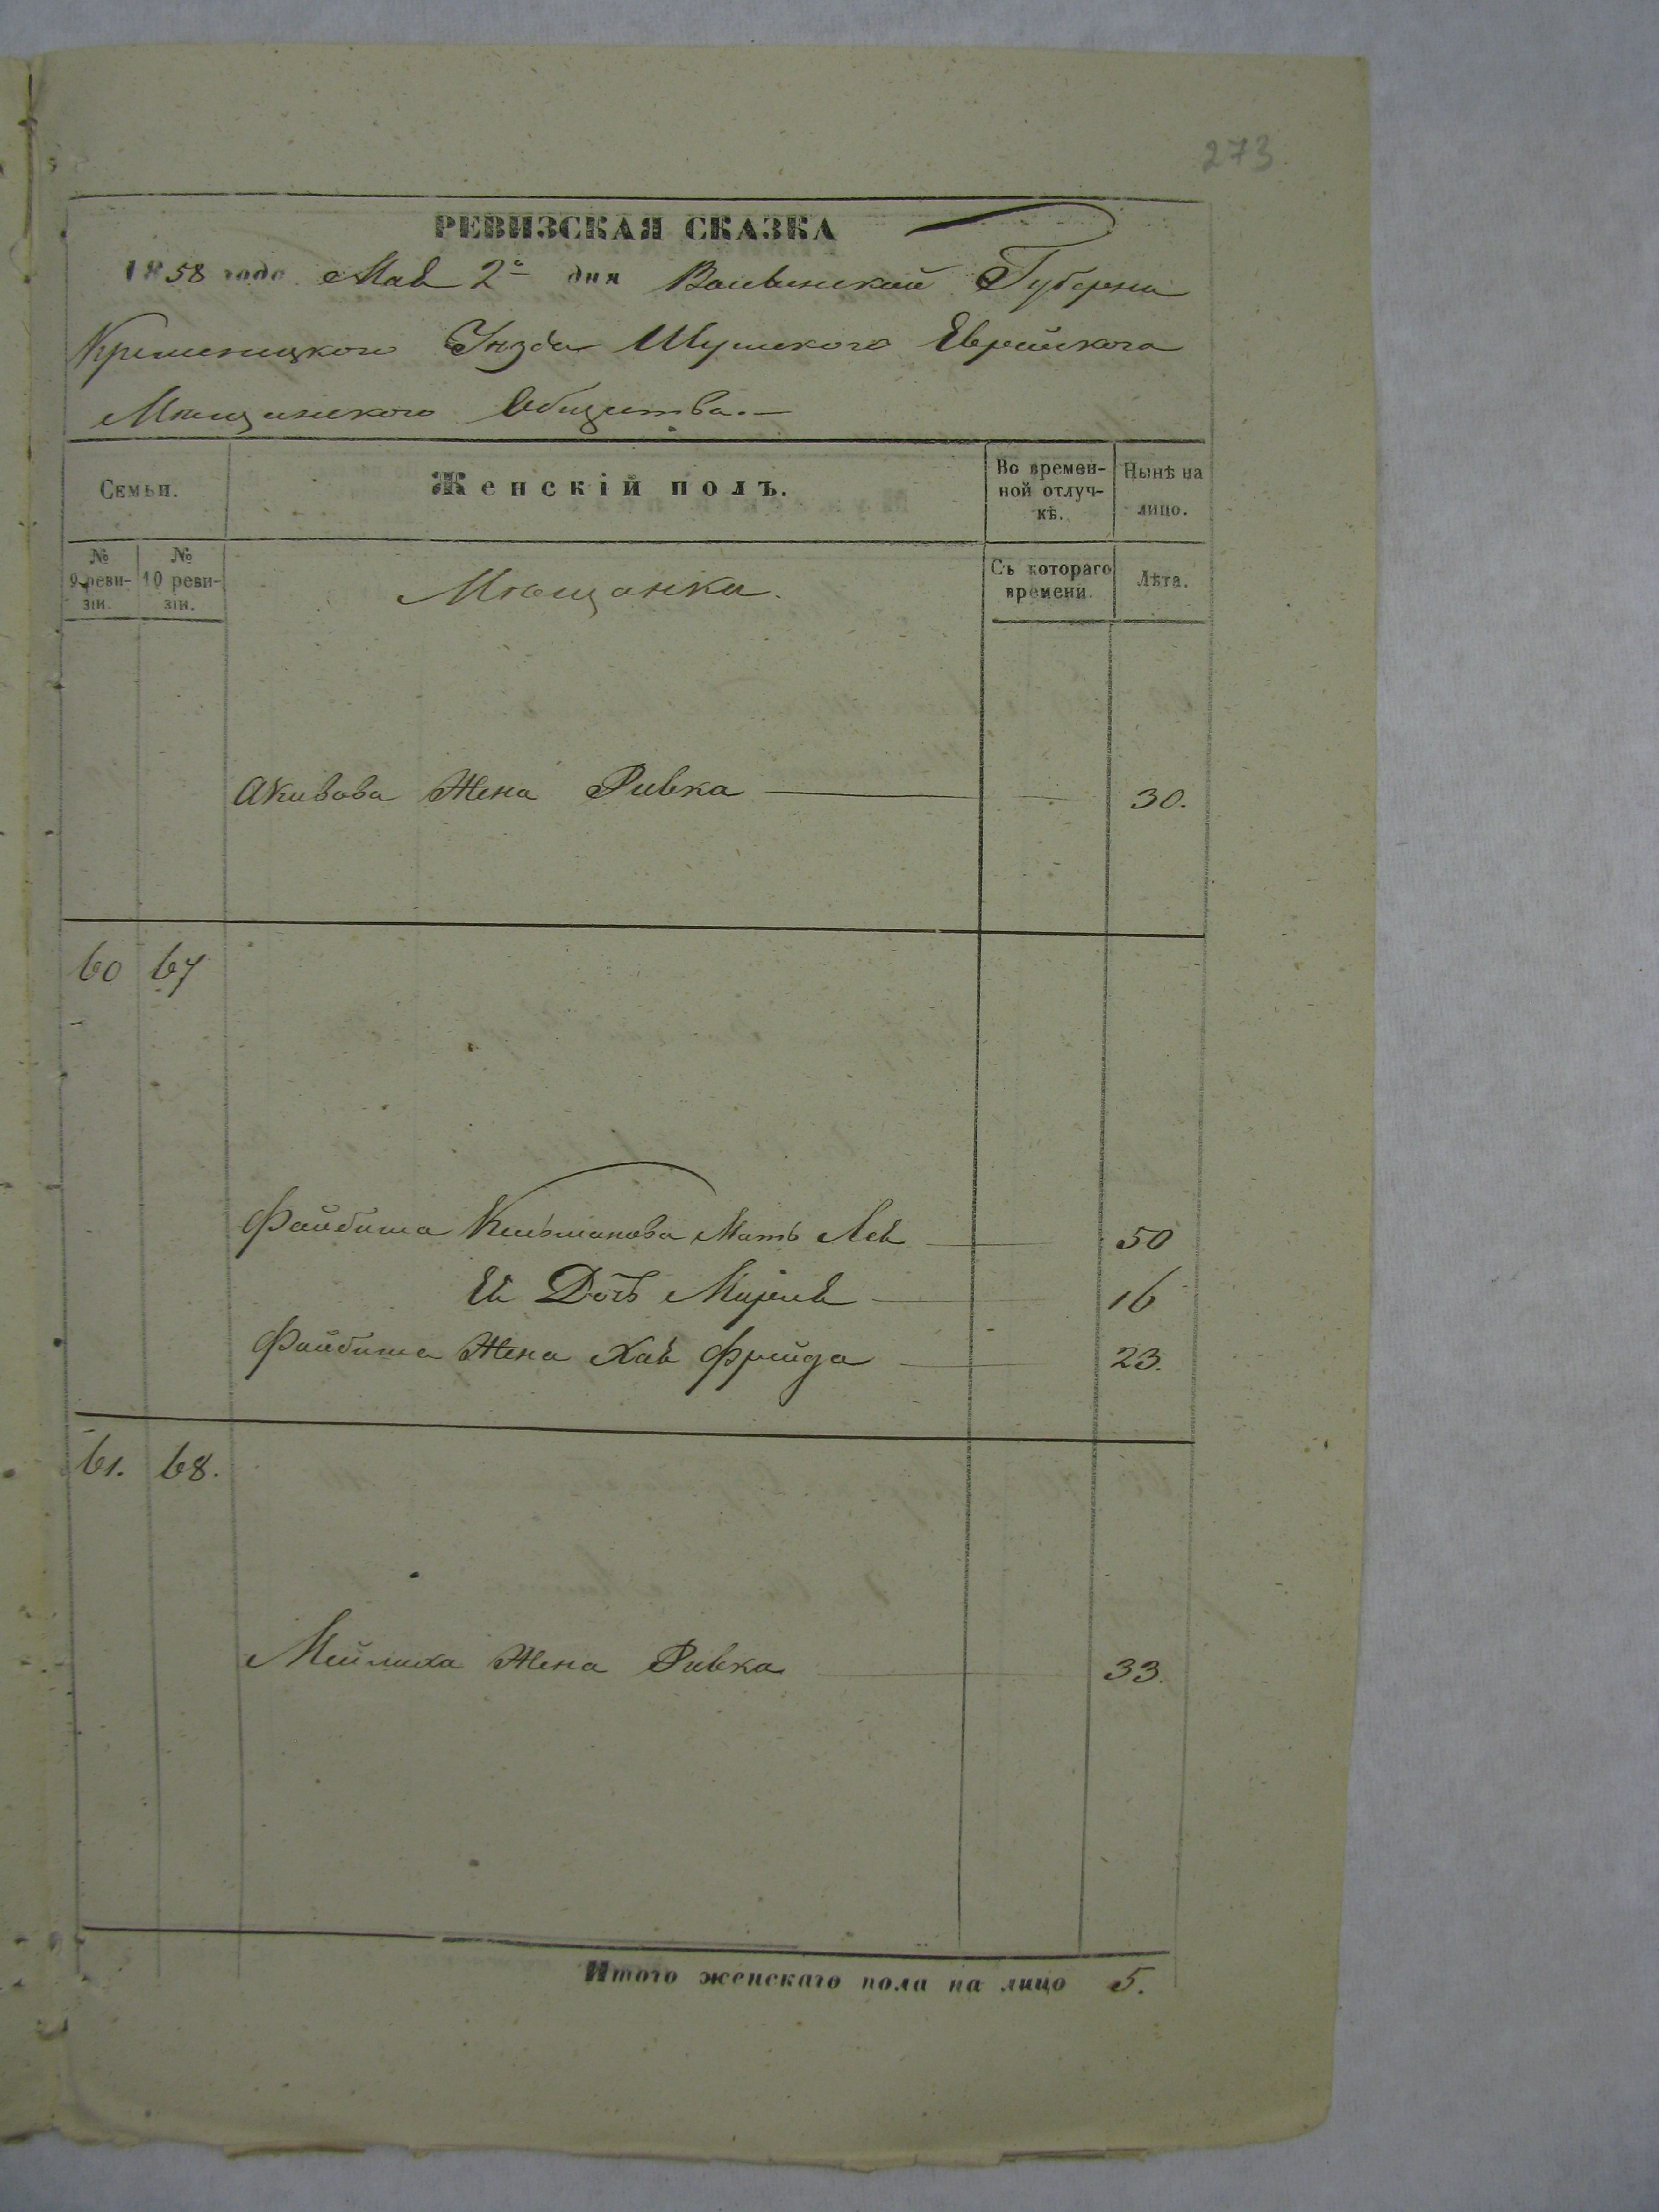 273
РЕВИЗСКАЯ СКАЗКА
1858 года Мая 2го дня Волынской Губерни
Кременецкого Уезда Шумского Еврейского
Мѣщанского Общества.—
Семьи.
Женскій полъ.
Во времен-
ной отлуч-
кѣ.
Нынѣ на
лицо.
№
9 реви-
зіи.
№
10 реви-
зіи.
Мѣщанка.
Съ котораго
времени.
Лѣта.
Акивова Жена Ривка — — 30.
60 67
Файбиша Кельманова Мать Лея — 50
Ея Дочь Мирля — 16
Файбиша Жена Хая Фрейда — 23.
61. 68.
Мейлиха Жена Ривка — 33.
Итого женскаго пола на лицо 5.